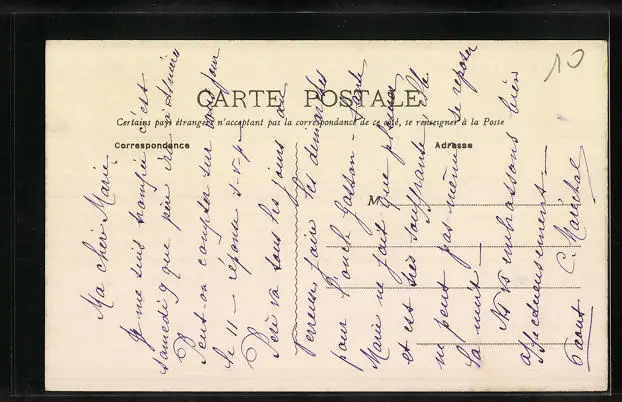 10
CARTE POSTALE
Certains pays étrangers n'acceptant pas la correspondance de ce côté, se renseigner à la Poste
Correspondance
Adresse
M
Ma chère Marie,
Je me suis trompée c'est
samedi 9 que père ira à
Peut-on compter sur jour
le 11 — réponse s.v.p.
Père va tous les jours au
Perreux faire les démarches
pour l'oncle Gaston — Tante
Marie ne fait que pleurer
et est très souffrante elle
ne peut pas même se reposer
la nuit —
Ns vs embrassons bien
affectueusement —
C. Maréchal
6 aout